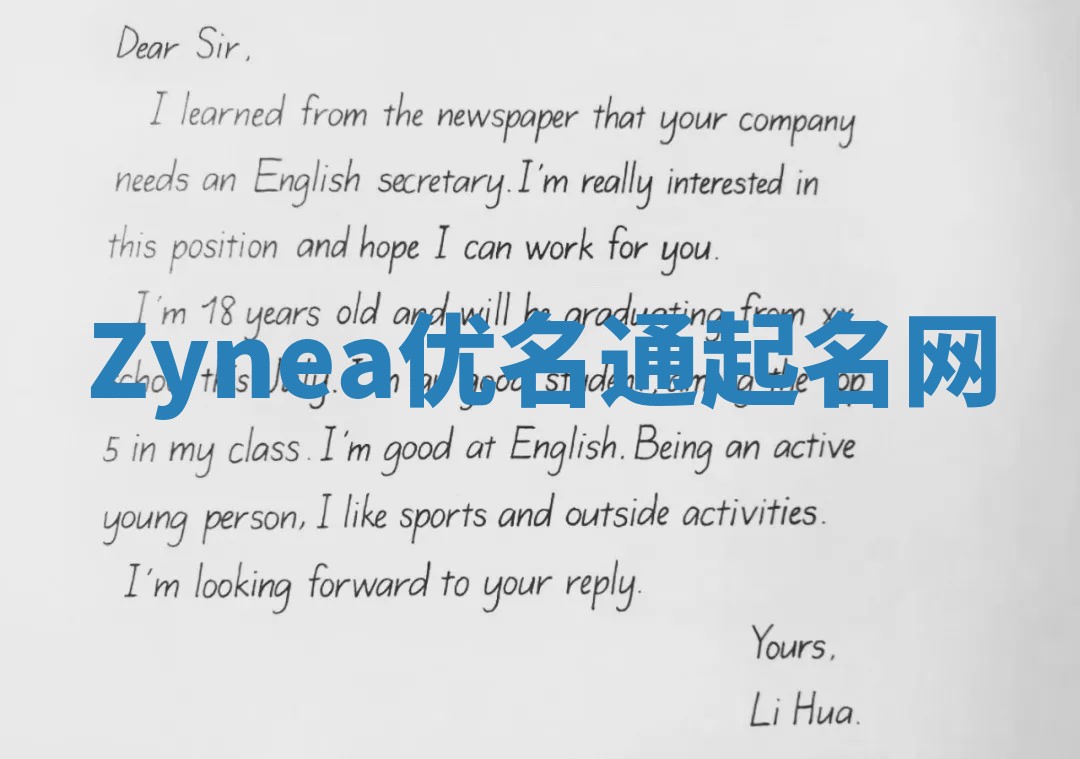 Dear Sir,
I learned from the newspaper that your company
needs an English secretary. I'm really interested in
this position and hope I can work for you.
I'm 18 years old and will be graduating from xx
Zynea优名通起名网
this July. I'm a good student, among the top
5 in my class. I'm good at English. Being an active
young person, I like sports and outside activities.
I'm looking forward to your reply.
Yours,
Li Hua.